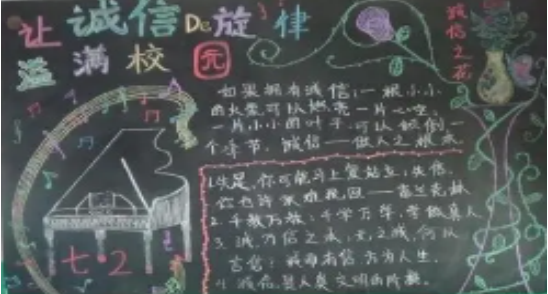 让诚信De旋律
溢满校园
诚信之花
如果拥有诚信：一根小小
的火柴可以燃亮一片心空，
一片小小的叶子，可以倾倒一
个季节，诚信——做人之根本
1.失足，你可能马上复站立；失信，
你也许永难挽回——富兰克林
2.千教万教，千学万学，学做真人
3.诚为信之本；无之诚，何以
言信；诚而有信，方为人生。
4.诚信，是人类文明的阶梯。
七·2